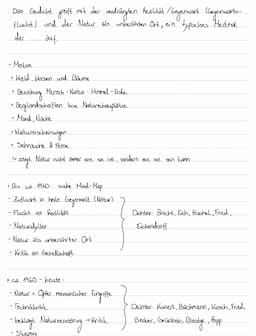 Das Gedicht greift mit der verdrängten Realität / Gegenwart (Gegenwarts-
flucht) und der Natur als unberührten Ort, ein typisches Merkmal
der ... auf.
- Motive
• Wald, Wiesen und Bäume
• Beziehung Mensch - Natur - Himmel - Erde
• Berglandschaften bzw. Naturschauplätze
• Mond, Nacht
• Naturerscheinungen
• Sehnsucht & Ferne
→ zeigt Natur nicht immer wie sie ist, sondern wie sie sein kann
• Bis ca. 1960: siehe Mind-Map
- Zuflucht in heile Gegenwelt (Natur)
- Flucht vor Realität
- Naturidylle
- Natur als unberührter Ort
- Kritik an Gesellschaft
Dichter: Brecht, Eich, Huchel, Fried,
Eichendorff
• ca. 1960 - heute:
- Natur = Opfer menschlicher Eingriffe
- Technikkritik
- beklagt Naturzerstörung → Kritik
- Skepsis
Dichter: Kunert, Bachmann, Kirsch, Fried,
Becker, Grünbein,